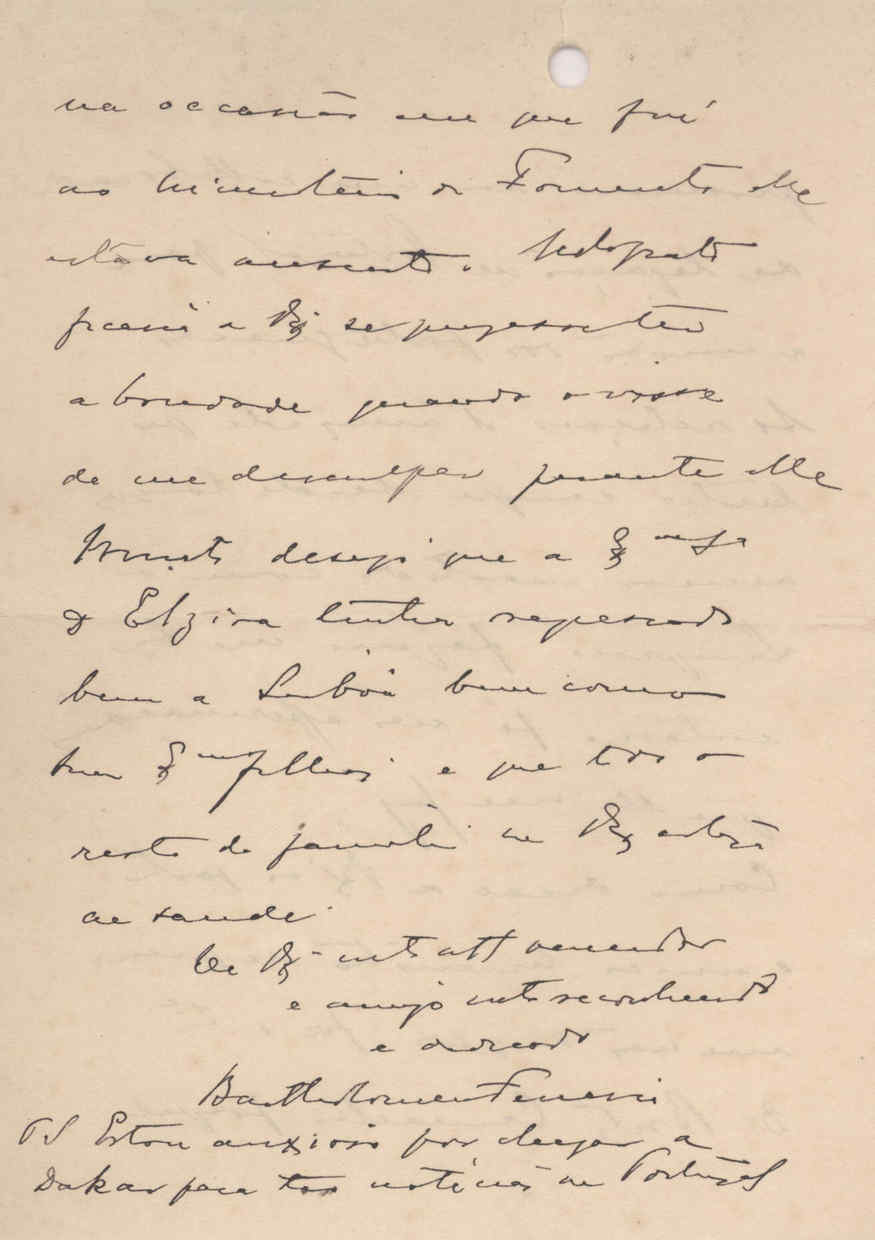 na occasião em que fui
ao Ministerio do Fomento elle
estava ausente.
ficaria a V Ex se tem
a bondade quando o visse
de me desculpar perante elle
Muito desejo que a Ex.ma Sr.a
D Elzira tenha regressado
bem a Lisboa bem como
seus Ex.mos filhos e que todo o
resto de familia de V Ex esteja
de saude.
De V Ex mto att venerador
e amigo mto reconhecido
e obrigado
Bartholomeu Ferreira
PS Estou anxioso por chegar a
Dakar para ter noticias de Portugal